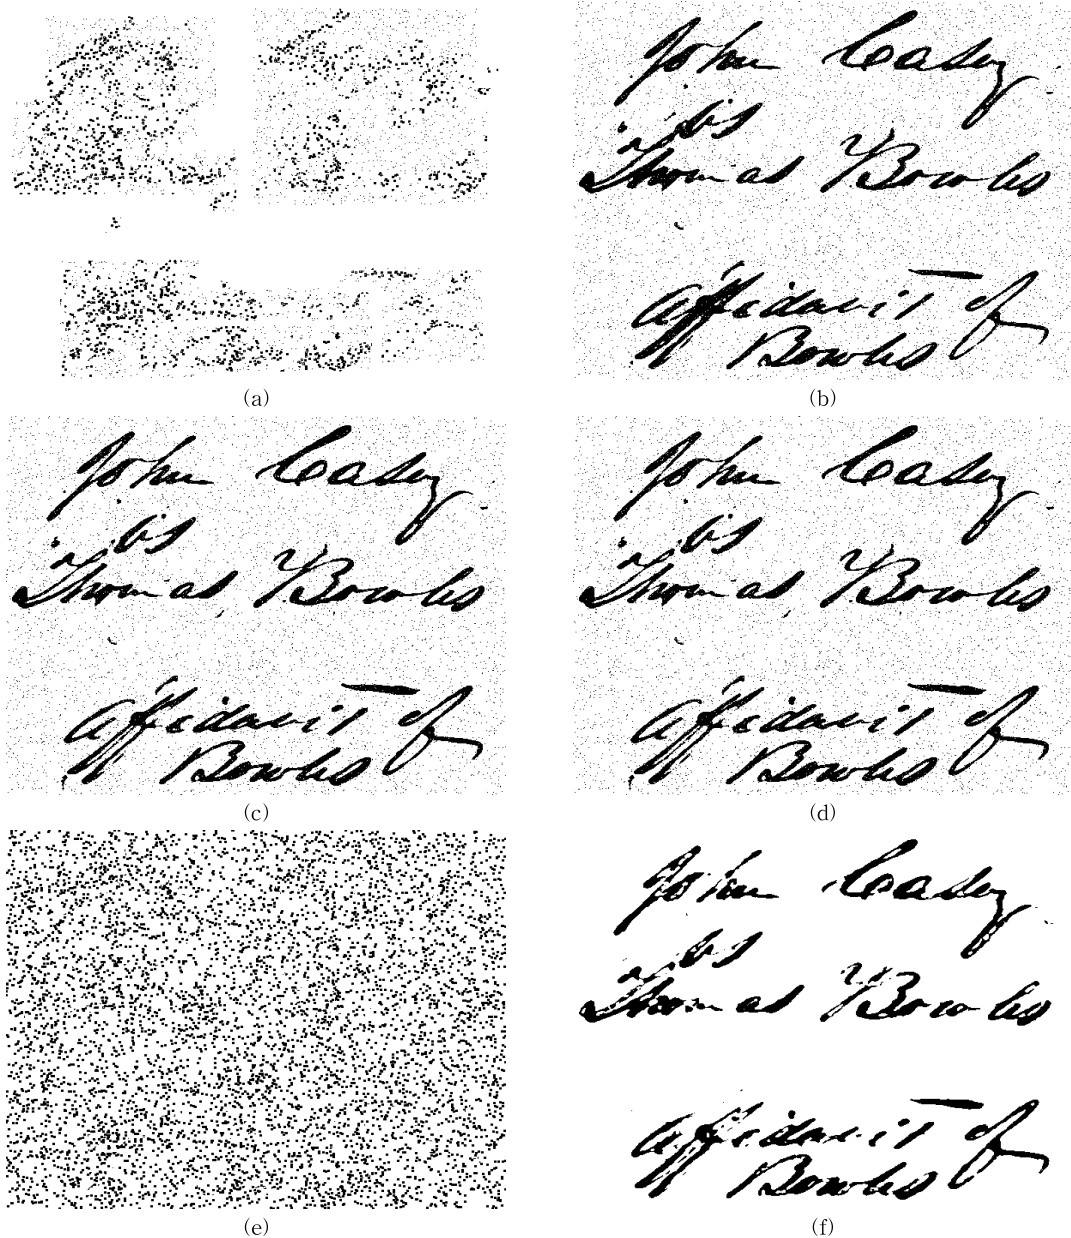 (a)
John Casey
vs
Thomas Bowles
Affidavit of
Bowles
(b)
John Casey
vs
Thomas Bowles
Affidavit of
Bowles
(c)
John Casey
vs
Thomas Bowles
Affidavit of
Bowles
(d)
(e)
John Casey
vs
Thomas Bowles
Affidavit of
Bowles
(f)